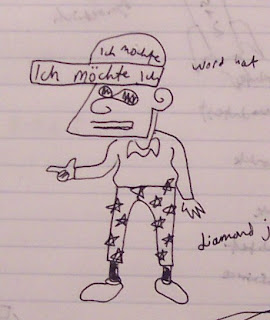 Ich möchte
Ich möchte Ich
word hat
diamond j